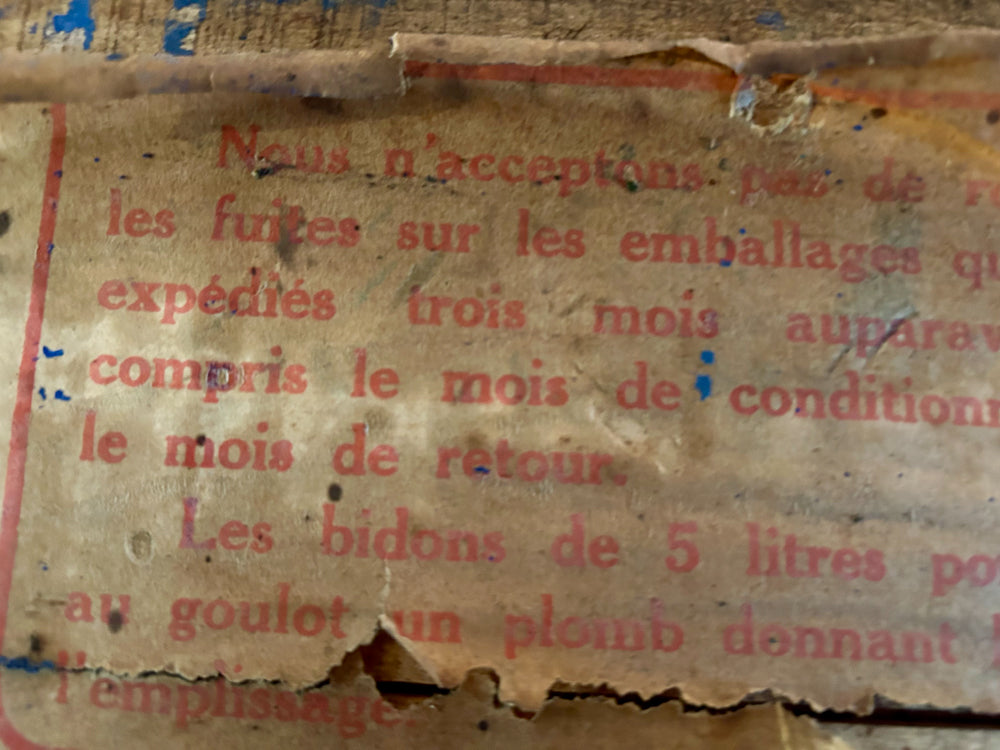 Nous n'acceptons pas de
les fuites sur les emballages
expédiés trois mois
compris le mois de
le mois de retour.
Les bidons de 5 litres
au goulot un plomb donnant
l'emplissage.